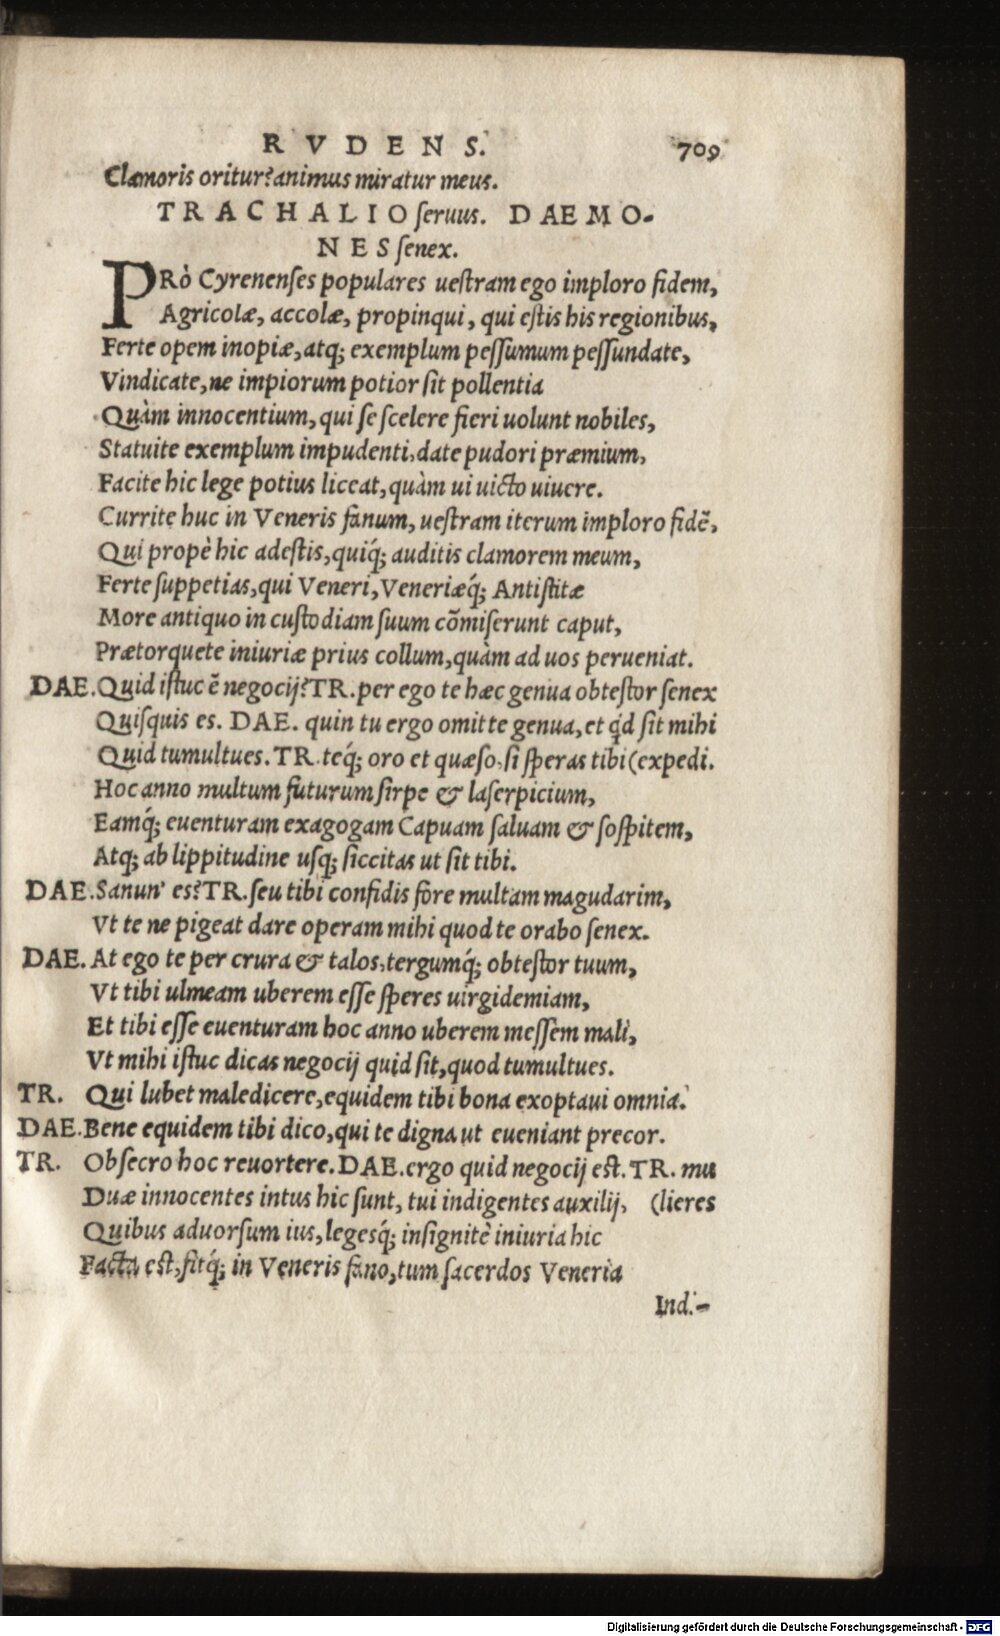 RVDENS. 709
Clamoris oritur? animus miratur meus.
TRACHALIO ſeruus. DAEMO-
NES ſenex.
PRò Cyrenenſes populares ueſtram ego imploro fidem,
Agricolæ, accolæ, propinqui, qui eſtis his regionibus,
Ferte opem inopiæ, atq; exemplum peſſumum peſſundate,
Vindicate, ne impiorum potior ſit pollentia
Quàm innocentium, qui ſe ſcelere fieri uolunt nobiles,
Statuite exemplum impudenti, date pudori præmium,
Facite hic lege potius liceat, quàm ui uicto uiuere.
Currite huc in Veneris fanum, ueſtram iterum imploro fidē,
Qui propè hic adeſtis, quiq́; auditis clamorem meum,
Ferte ſuppetias, qui Veneri, Veneriæq́; Antiſtitæ
More antiquo in cuſtodiam ſuum cōmiſerunt caput,
Prætorquete iniuriæ prius collum, quàm ad uos perueniat.
DAE. Quid iſtuc ē negocij? TR. per ego te hæc genua obteſtor ſenex
Quiſquis es. DAE. quin tu ergo omitte genua, et qd ſit mihi
Quid tumultues. TR. teq́; oro et quæſo, ſi ſperas tibi (expedi.
Hoc anno multum futurum ſirpe & laſerpicium,
Eamq́; euenturam exagogam Capuam ſaluam & ſoſpitem,
Atq; ab lippitudine uſq; ſiccitas ut ſit tibi.
DAE. Sanun' es? TR. ſeu tibi confidis fore multam magudarim,
Vt te ne pigeat dare operam mihi quod te orabo ſenex.
DAE. At ego te per crura & talos, tergumq́; obteſtor tuum,
Vt tibi ulmeam uberem eſſe ſperes uirgidemiam,
Et tibi eſſe euenturam hoc anno uberem meſſem mali,
Vt mihi iſtuc dicas negocij quid ſit, quod tumultues.
TR. Qui lubet maledicere, equidem tibi bona exoptaui omnia.
DAE. Bene equidem tibi dico, qui te digna ut eueniant precor.
TR. Obſecro hoc reuortere. DAE. ergo quid negocij eſt. TR. mu
Duæ innocentes intus hic ſunt, tui indigentes auxilij, (lieres
Quibus aduorſum ius, legesq́; inſignitè iniuria hic
Facta eſt, fitq́; in Veneris fano, tum ſacerdos Veneria
Ind.-
Digitalisierung gefördert durch die Deutsche Forschungsgemeinschaft - DFG